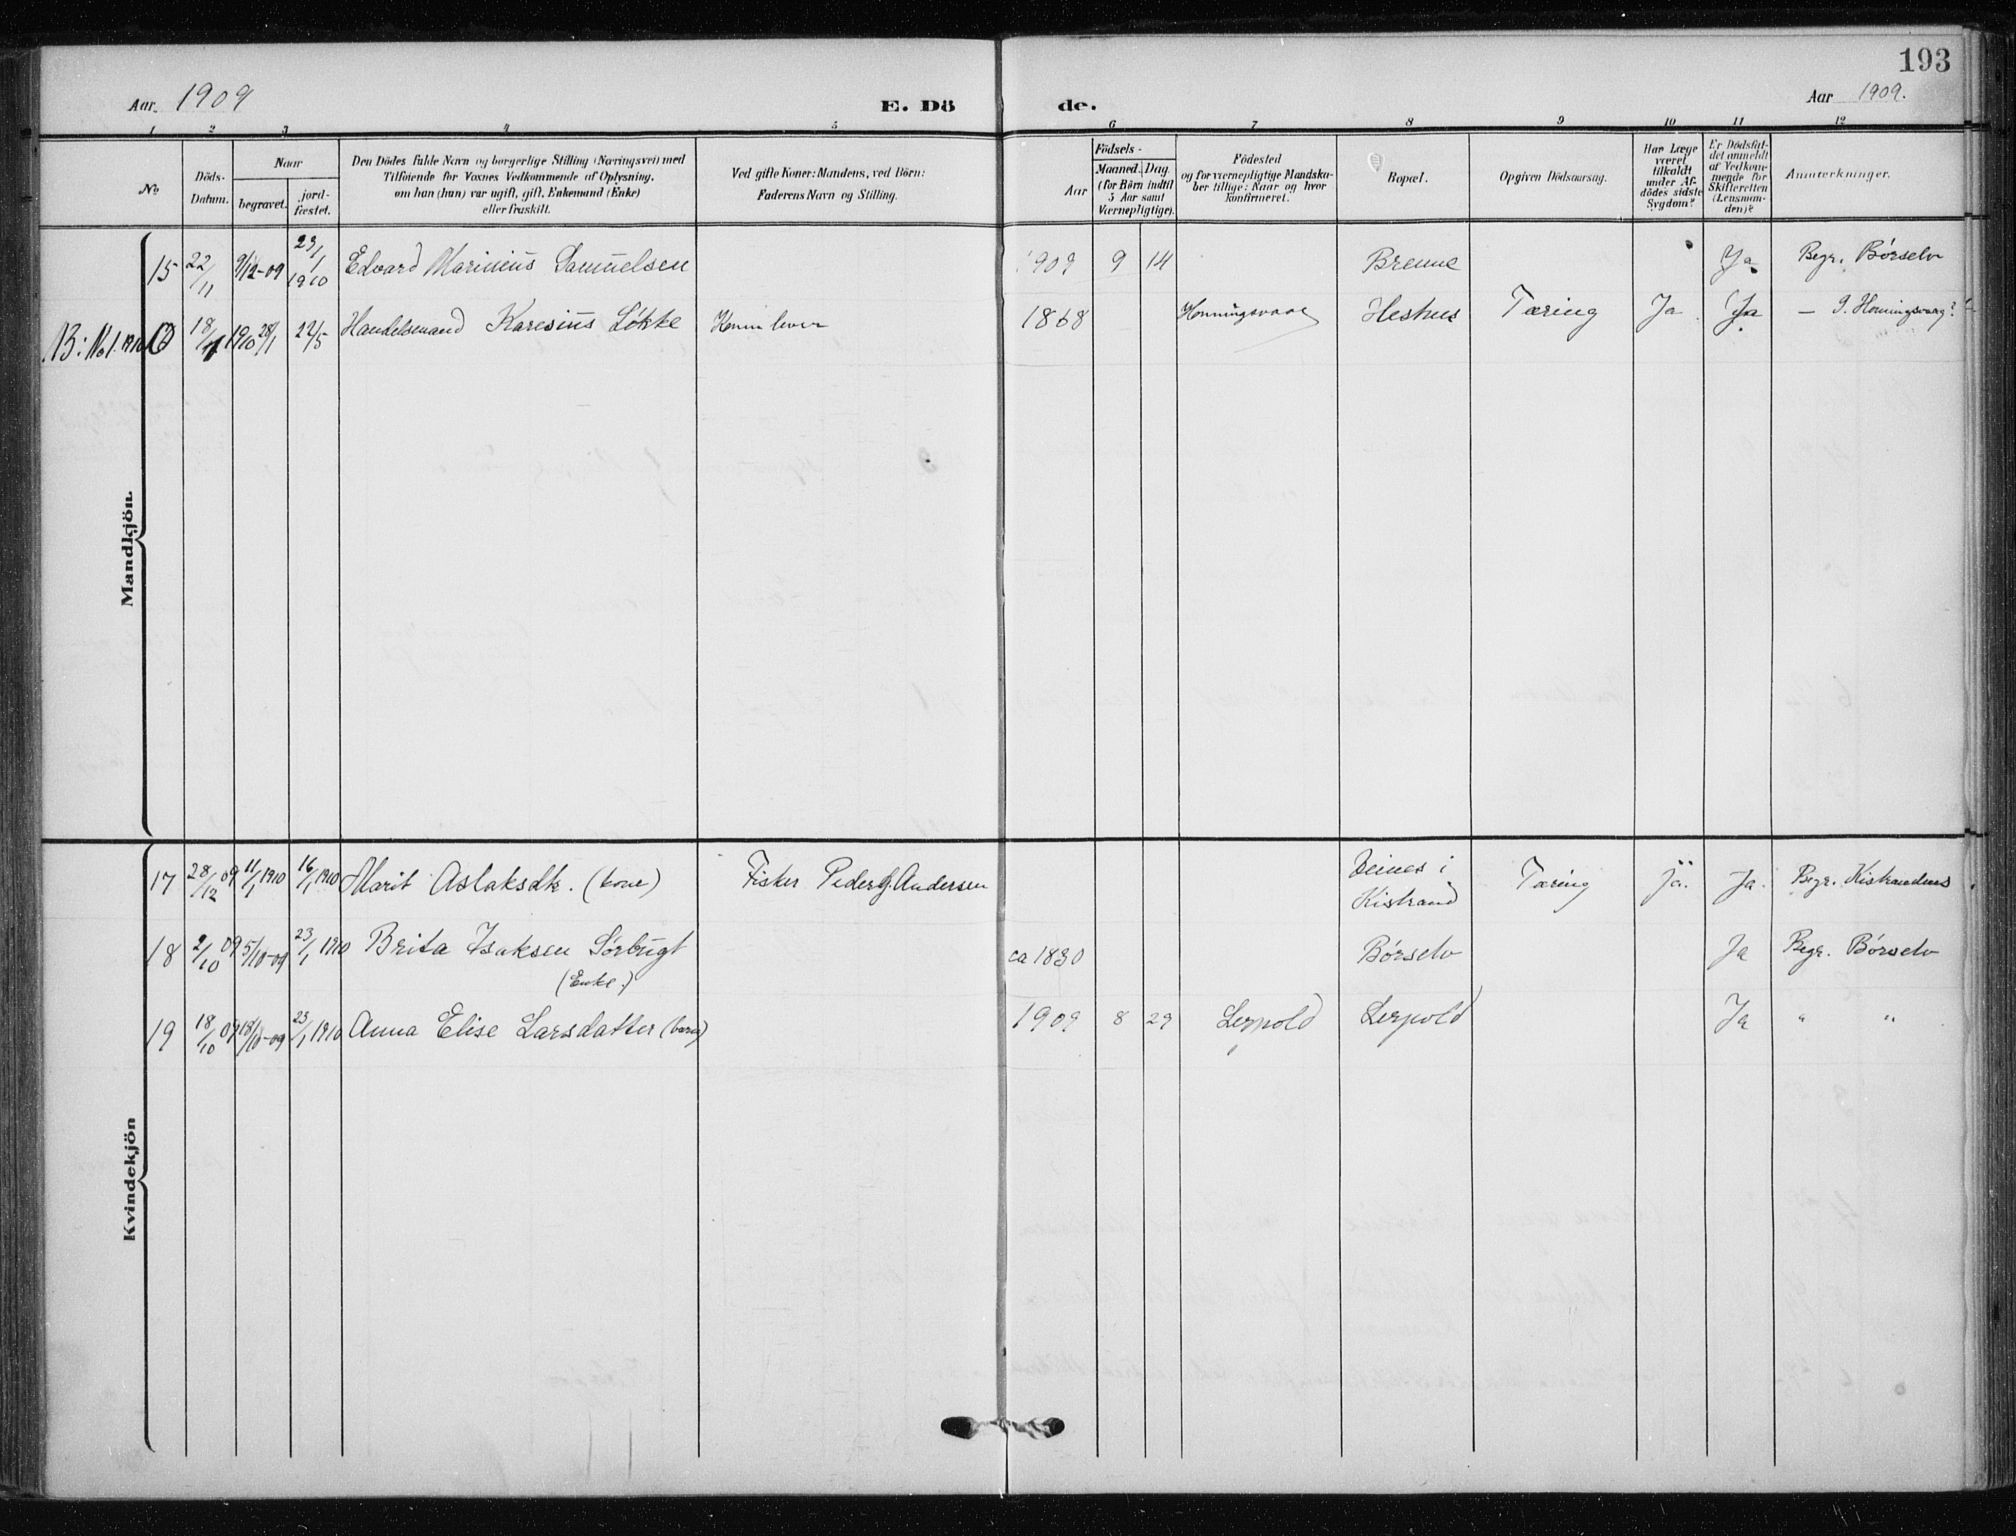 193
Aar. 1909 E. Dö de. Aar 1909.
1 2 3 4 5 6 7 8 9 10 11 12
No
Döds-Datum.
Naar
begravet.
jord-fæstet.
Den Dödes fulde Navn og borgerlige Stilling (Næringsvei) med
Tilföiende for Voxnes Vedkommende af Oplysning,
om han (hun) var ugift, gift, Enkemand (Enke)
eller fraskilt.
Ved gifte Koner: Mandens, ved Börn:
Faderens Navn og Stilling.
Födsels-
Aar
Maaned. Dag.
(for Börn indtil
5 Aar samt
Værnepligtige).
Födested
og for værnepligtige Mandska-
ber tillige: Naar og hvor
konfirmeret.
Bopæl.
Opgiven Dödsaarsag.
Har Læge
været
tilkaldt
under Af-
dödes sidste
Sygdom?
Er Dödsfal-
det anmeldt
af Vedkom-
mende for
Skifteretten
(Lensman-
den)?
Anmærkninger.
Mandkjön.
15 22/11 9/12-09 23/1 1910 Edvard Marinius Samuelsen 1909 9 14 Brenne Ja Begr. Börselv
18/11 1910 28/1 22/5 Handelsmand Karesius Lökke 1868 Honningsvaag Heshus Tæring Ja Ja — I. Honningsvaag?
Kvindekjön
17 28/12 09 11/1 1910 16/1 1910 Marit Aslaksdtr. (kone) Fisker Peder G. Andersen Deines i Kistrand Tæring ja. Ja. Begr. Kistrandnes
18 2/10 09 5/10-09 23/1 1910 Brita Isaksen Sörbugt (Enke.) ca 1830 Börselv Ja Begr. Börselv
19 18/10 09 18/10-09 23/1 1910 Anna Elise Larsdatter (barn) 1909 8 29 Lerpold Lerpold Ja " "